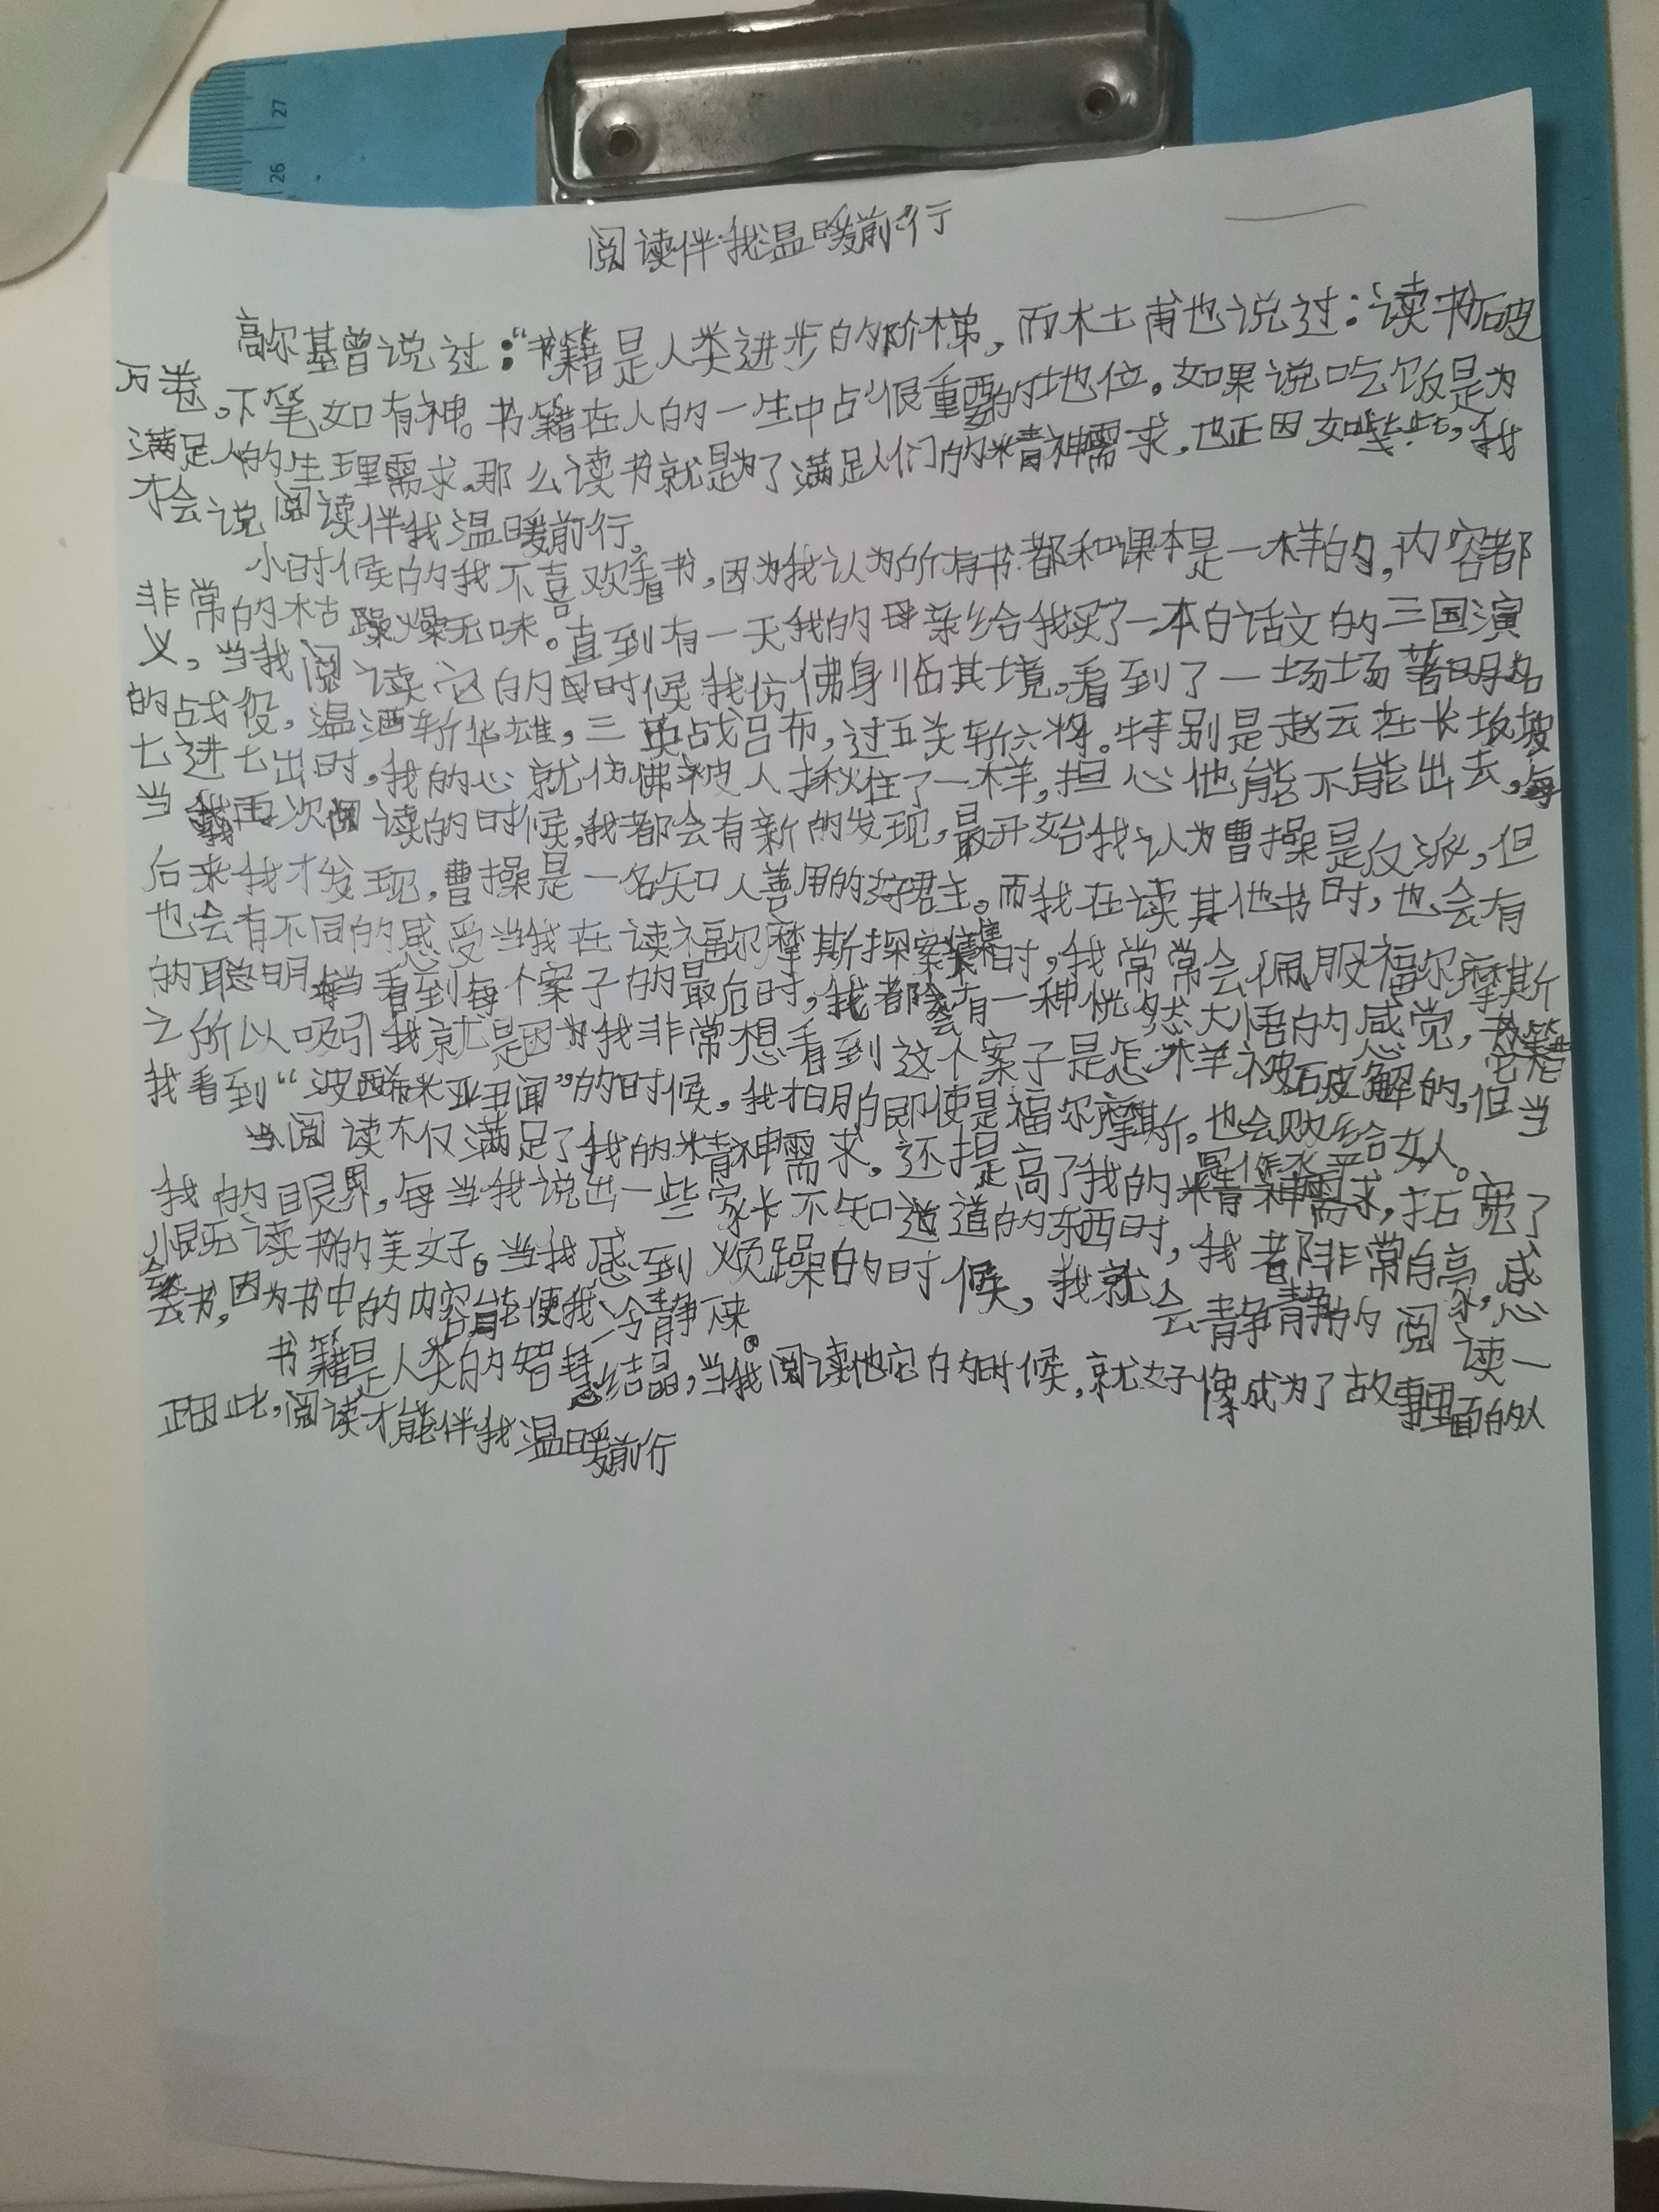 27
26
阅读伴我温暖前行
高尔基曾说过:“书籍是人类进步的阶梯,而杜甫也说过:读书破
万卷。下笔如有神。书籍在人的一生中占很重要的地位。如果说吃饭是为
满足人的生理需求,那么读书就是为了满足人们的精神需求,也正因如此,我
才会说阅读伴我温暖前行。
小时候的我不喜欢看书,因为我认为所有书都和课本是一样的,内容都
非常的枯燥无味。直到有一天我的母亲给我买了一本白话文的三国演
义,当我阅读它的时候我仿佛身临其境,看到了一场场著名
的战役,温酒斩华雄,三英战吕布,过五关斩六将。特别是赵云在长坂坡
七进七出时,我的心就仿佛被人揪住了一样,担心他能不能出去,每
当我再次阅读的时候,我都会有新的发现,最开始我认为曹操是反派,但
后来我才发现,曹操是一名知人善用的好君主。而我在读其他书时,也会有
也会有不同的感受当我在读福尔摩斯探案集时,我常常会佩服福尔摩斯
的聪明,每当看到每个案子的最后时,我都会有一种恍然大悟的感觉,书籍
之所以吸引我就是因为我非常想看到这个案子是怎样被破解的,但当
我看到“波西米亚丑闻”的时候,我才明白即使是福尔摩斯,也会败给女人。
阅读不仅满足了我的精神需求,还提高了我的写作水平,拓宽了
我的眼界,每当我说出一些家长不知道的东西时,我都非常自豪,感
慨读书的美好。当我感到烦躁的时候,我就会静静的阅读一
会书,因为书中的内容能使我冷静下来。
书籍是人类的智慧结晶,当我阅读它的时候,就好像成为了故事里面的人
正因此,阅读才能伴我温暖前行